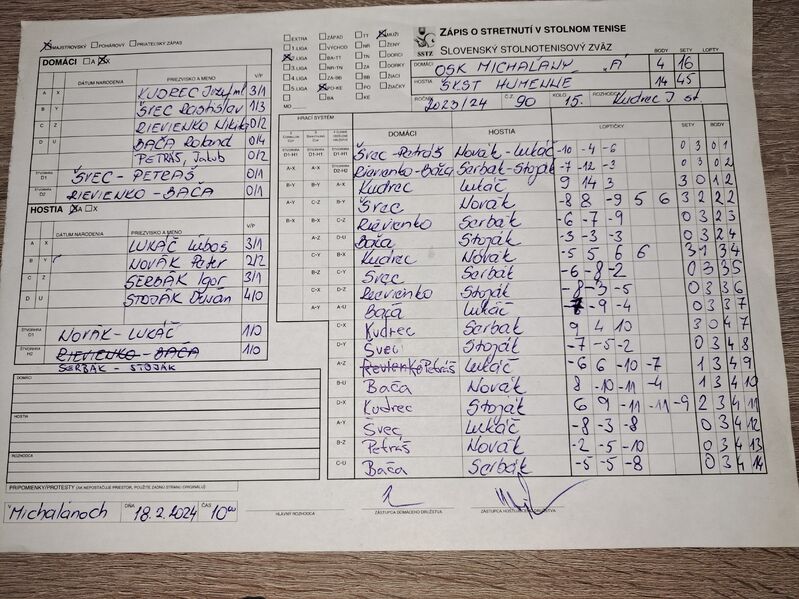 MAJSTROVSKÝ POHÁROVÝ PRIATEĽSKÝ ZÁPAS
EXTRA ZÁPAD TT MUŽI
1.LIGA VÝCHOD NR ŽENY
BA-TT TN DORCI
NR-TN ZA DORKY
4.LIGA ZA-BB BB ŽIACI
5.LIGA PO-KE PO ŽIAČKY
MD BA KE
SSTZ
ZÁPIS O STRETNUTÍ V STOLNOM TENISE
SLOVENSKÝ STOLNOTENISOVÝ ZVÄZ
BODY SETY LOPTY
DOMÁCI OSK MICHAĽANY "A" 4 16
HOSTIA ŠKST HUMENNE 14 45
ROČNÍK 2023/24 Č.Z. 90 KOLO 15. ROZHODCA Kudrec J st.
DOMÁCI A X
DÁTUM NARODENIA PRIEZVISKO A MENO V/P
A X KUDREC Jozef ml 3/1
B Y ŠVEC Rastislav 1/3
C Z RIEVIENKO Nikita 0/2
D U BAČA Roland 0/4
PETRÁŠ, Jakub 0/2
ŠTVORHRA D1 ŠVEC - PETRÁŠ 0/1
ŠTVORHRA D2 RIEVIENKO - BAČA 0/1
HOSTIA A X
DÁTUM NARODENIA PRIEZVISKO A MENO V/P
A X LUKÁČ Ľuboš 3/1
B Y NOVÁK Peter 2/2
C Z SERBÁK Igor 3/1
D U STOJÁK Dušan 4/0
ŠTVORHRA D1 NOVÁK - LUKÁČ 1/0
ŠTVORHRA H2 RIEVIENKO - BAČA 1/0
SERBAK - STOJÁK
DOMÁCI
HOSTIA
ROZHODCA
HRACÍ SYSTÉM DOMÁCI HOSTIA LOPTIČKY SETY BODY
D1-H1 D1-H1 D1-H1 Švec - Petráš Novák - Lukáč -10 -4 -6 0 3 0 1
A-X A-X D2-H2 Rievienko - Bača Serbák - Stoják -7 -12 -3 0 3 0 2
B-Y B-Y A-X Kudrec Lukáč 9 14 3 3 0 1 2
A-Y C-Z B-Y Švec Novák -8 8 -9 5 6 3 2 2 2
B-X B-X C-Z Rievienko Serbák -6 -7 -9 0 3 2 3
A-Z D-U Bača Stoják -3 -3 -3 0 3 2 4
C-Y B-X Kudrec Novák -5 5 6 6 3 1 3 4
B-Z C-Y Švec Serbák -6 -8 -2 0 3 3 5
C-X D-Z Rievienko Stoják -8 -3 -5 0 3 3 6
A-Y A-U Bača Lukáč -9 -4 0 3 3 7
C-X Kudrec Serbák 9 4 10 3 0 4 7
D-Y Švec Stoják -7 -5 -2 0 3 4 8
A-Z Rievienko Petráš Lukáč -6 6 -10 -7 1 3 4 9
B-U Bača Novák 8 -10 -11 -4 1 3 4 10
D-X Kudrec Stoják 6 9 -11 -11 -9 2 3 4 11
A-Y Švec Lukáč -8 -3 -8 0 3 4 12
B-Z Petráš Novák -2 -5 -10 0 3 4 13
C-U Bača Serbák -5 -5 -8 0 3 4 14
PRIPOMIENKY/PROTESTY (AK NEPOSTAČUJE PRIESTOR, POUŽITE ZADNÚ STRANU ORIGINÁLU)
V Michaľanoch DŇA 18.2.2024 ČAS 10⁰⁰
HLAVNÝ ROZHODCA ZÁSTUPCA DOMÁCEHO DRUŽSTVA ZÁSTUPCA HOSŤUJÚCEHO DRUŽSTVA